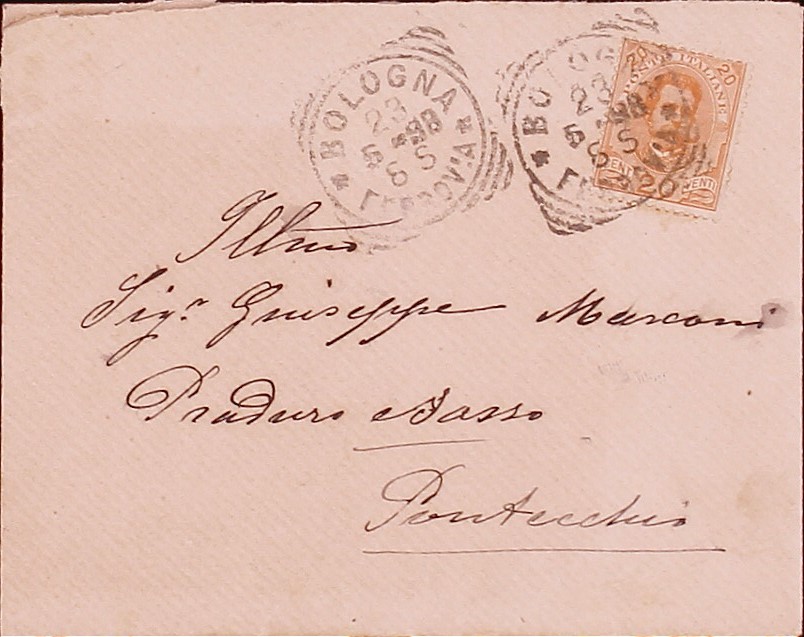 BOLOGNA
23
98
5 S
FERROVIA
BOLOGNA
20 POSTE ITALIANE 20
VENTI 20 VENTI
Illmo
Sigr. Giuseppe Marconi
Praduro e Sasso
Pontecchio